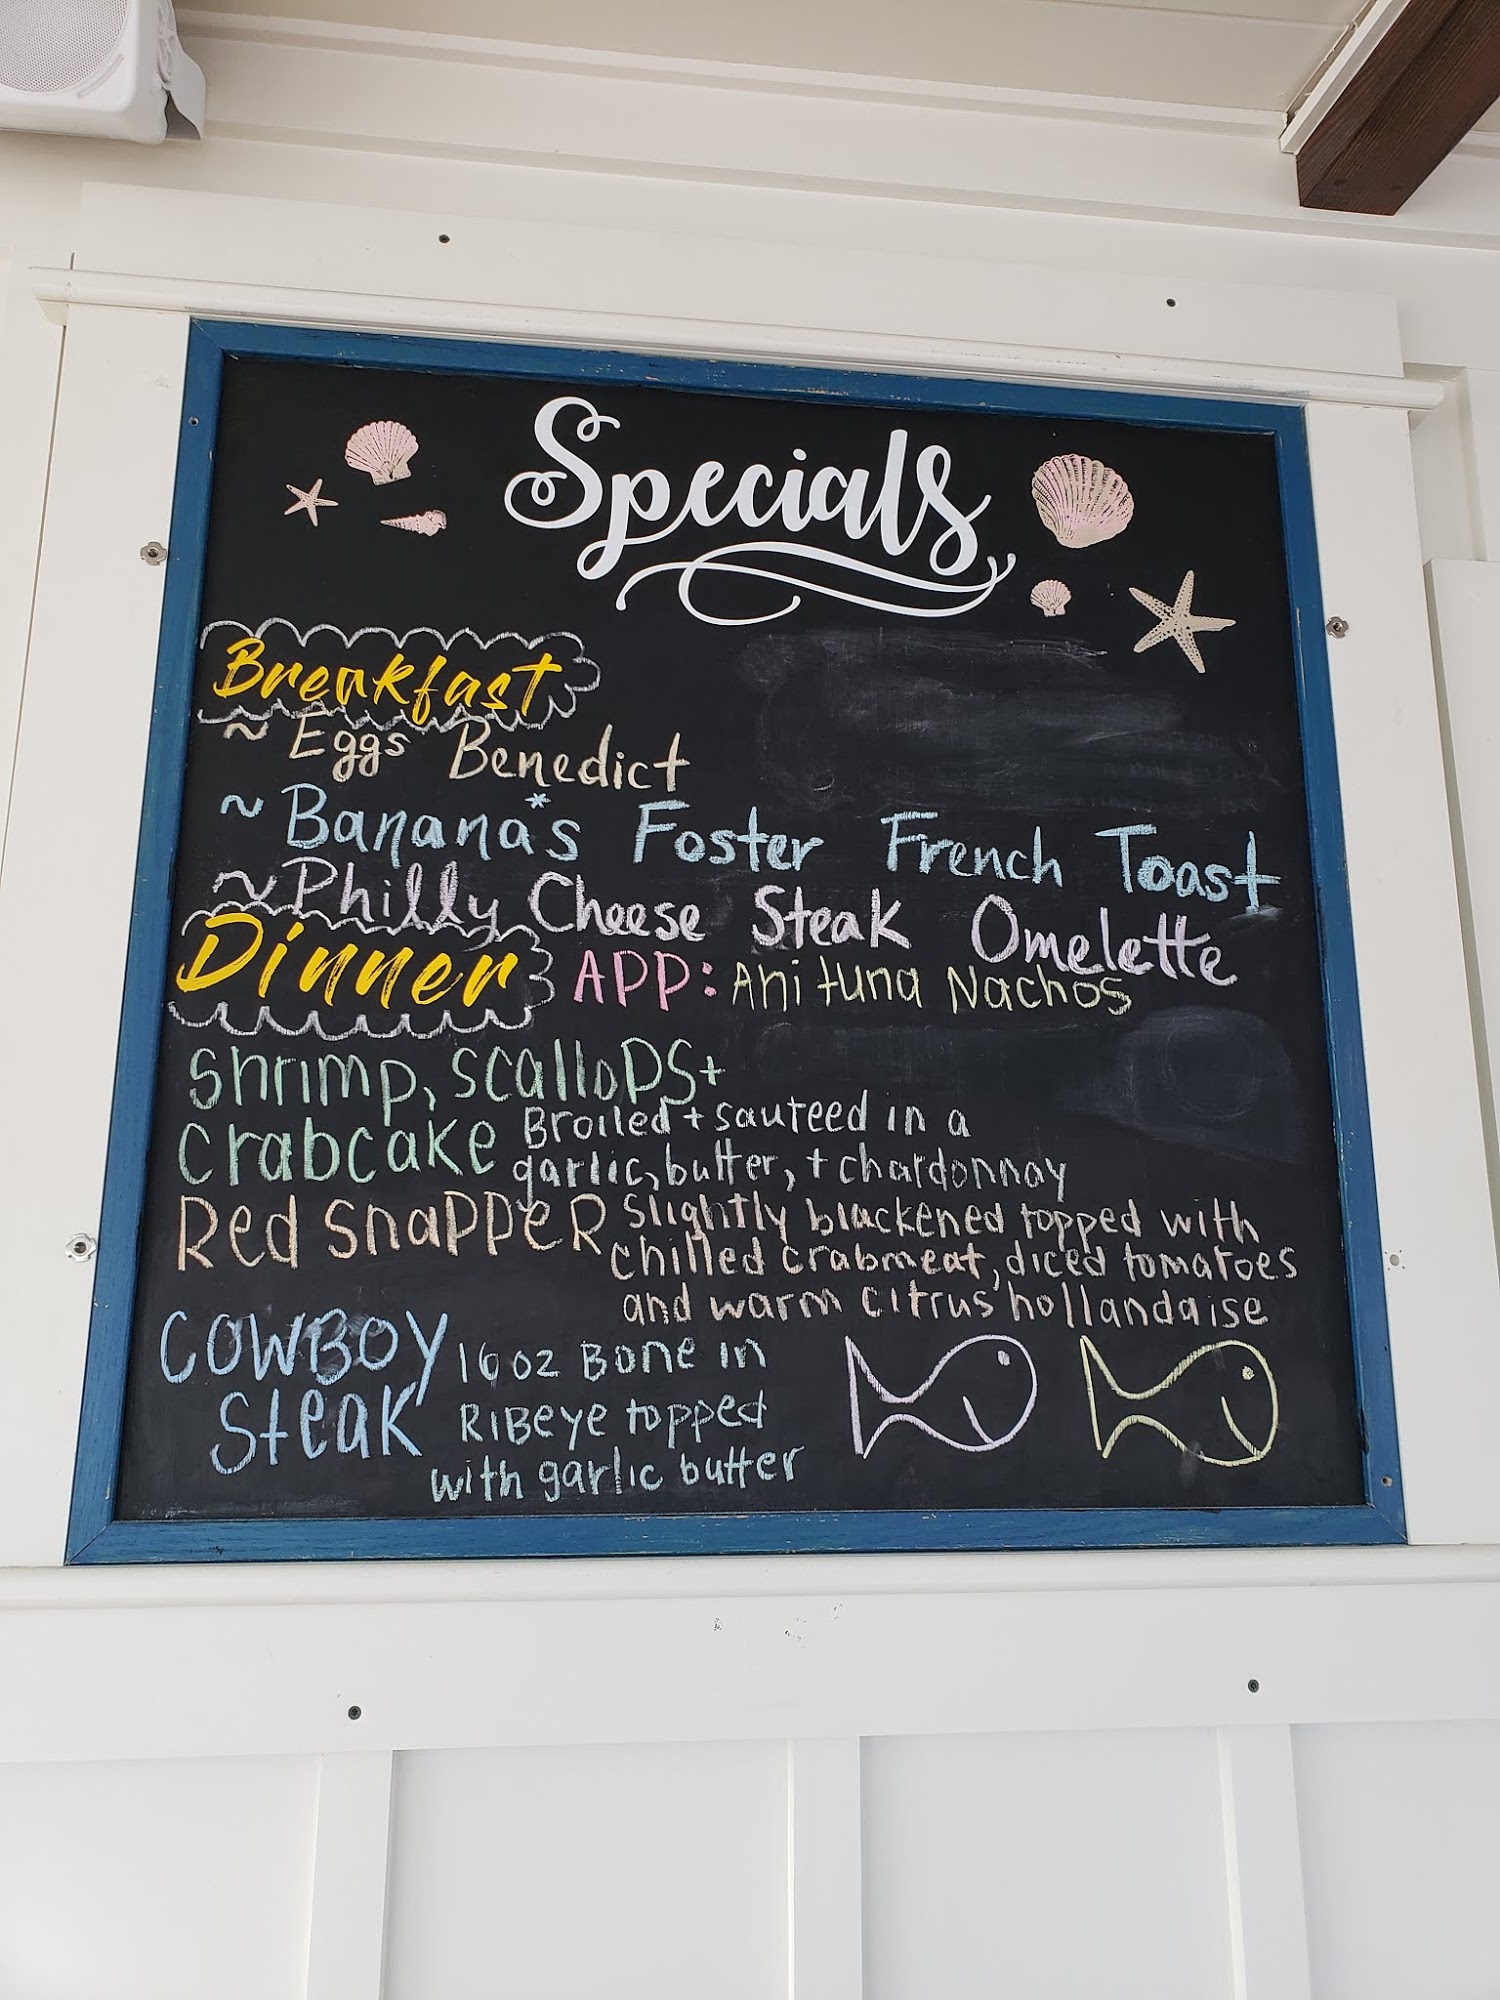 Specials
Breakfast
~ Eggs Benedict
~ Banana's Foster French Toast
~ Philly Cheese Steak Omelette
Dinner APP: Ahi tuna Nachos
shrimp, scallops +
crabcake Broiled + sauteed in a
garlic, butter, + chardonnay
Red snapper slightly blackened topped with
chilled crabmeat, diced tomatoes
and warm citrus hollandaise
COWBOY 16 oz Bone in
Steak Ribeye topped
with garlic butter